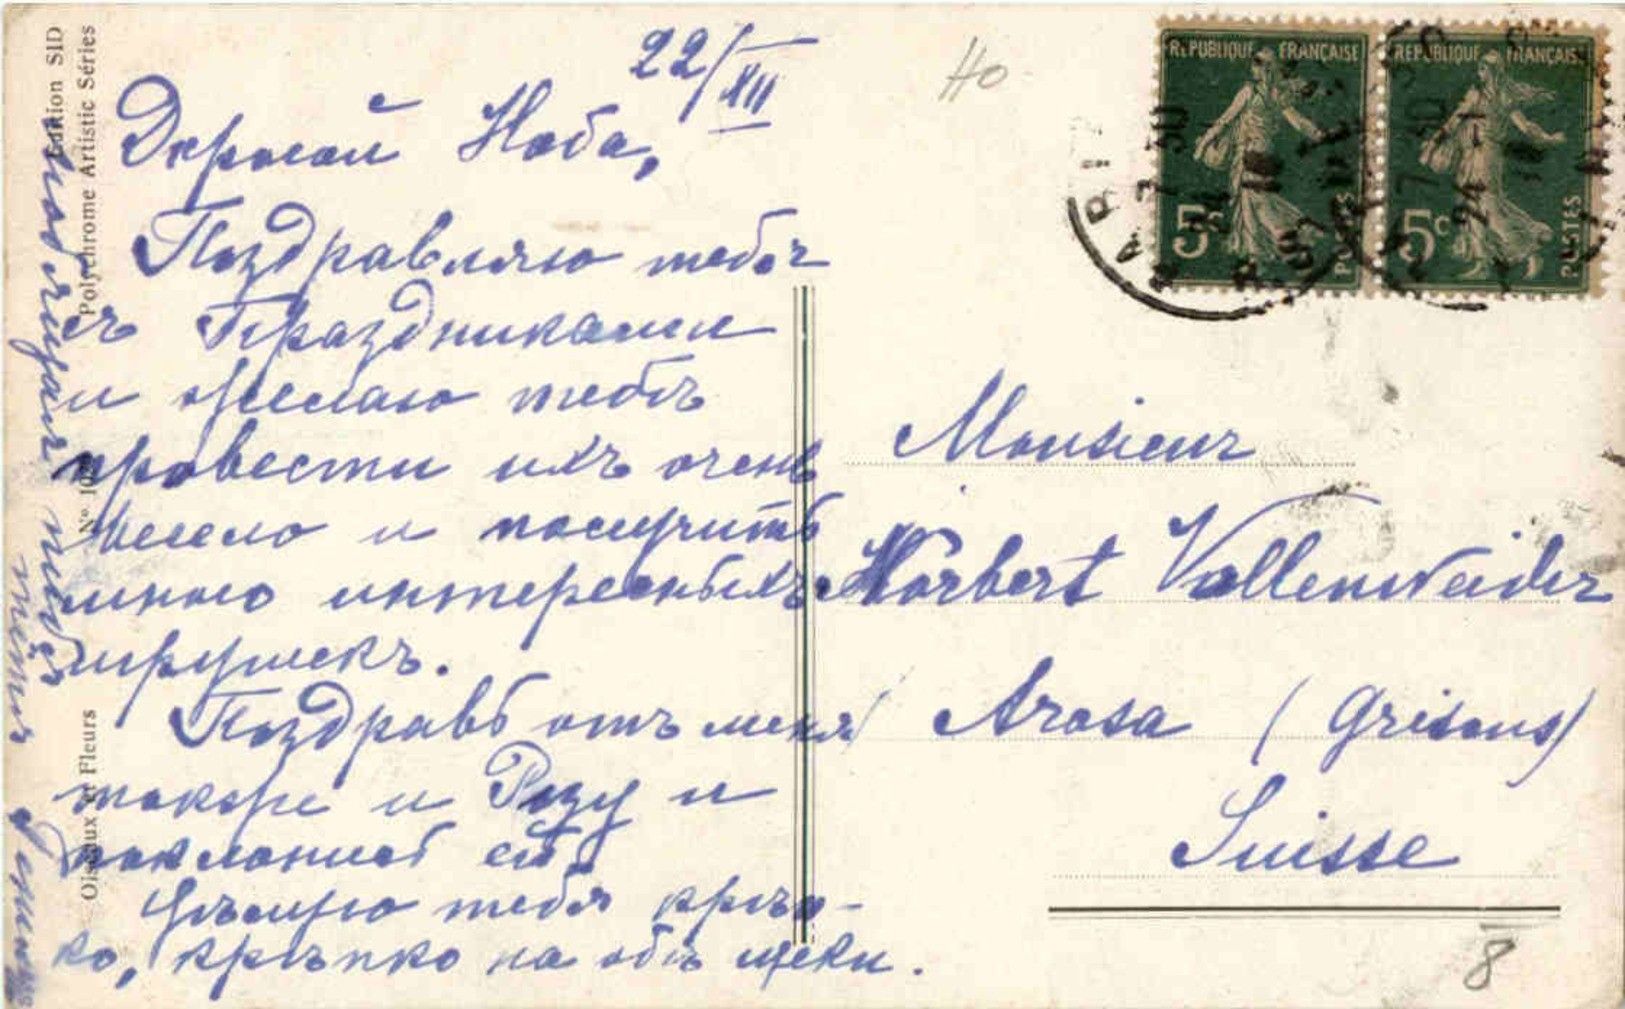 22/XII
Дорогой Ноба,
Поздравляю тебя
съ Праздниками
и желаю тебѣ
провести ихъ очень
весело и получить
много интересныхъ
игрушекъ.
Поздравь отъ меня
также и Розу и
поклонись ей.
Цѣлую тебя крѣп-
ко, крѣпко на обѣ щеки.
любящая тебя
тетя
Edition SID
Polychrome Artistic Séries
Nº
Oiseaux et Fleurs
HO
REPUBLIQUE FRANÇAISE
5c
POSTES
REPUBLIQUE FRANÇAISE
5c
POSTES
PARI
7 30
24
Monsieur
Norbert Vollenweider
Arosa (Grisons)
Suisse
8